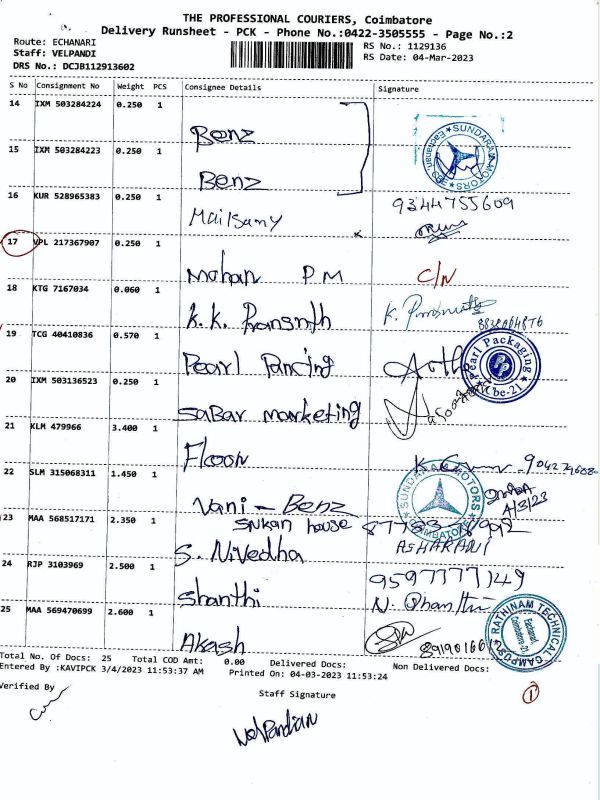 THE PROFESSIONAL COURIERS, Coimbatore
Delivery Runsheet - PCK - Phone No.:0422-3505555 - Page No.:2
Route: ECHANARI
Staff: VELPANDI
DRS No.: DCJB112913602
RS No.: 1129136
RS Date: 04-Mar-2023
S No Consignment No Weight PCS Consignee Details Signature
14 IXM 503284224 0.250 1
Benz
SUNDARAM MOTORS
15 IXM 503284223 0.250 1
Benz
16 KUR 528965383 0.250 1
Mailsamy
9344755609
17 VPL 217367907 0.250 1
Mohan P M C/N
18 KTG 7167034 0.060 1
K.K. Ransnth
19 TCG 40410836 0.570 1
Pearl Pancing
Pearl Packaging
Cbe-21
20 IXM 503136523 0.250 1
SaBar marketing
21 KLM 479966 3.400 1
Floon
22 SLM 315068311 1.450 1
Vani - Benz
SUNDARAM MOTORS
COIMBATORE
4/3/23
23 MAA 568517171 2.350 1
house
S. Nivedha
ASHARANI
24 RJP 3103969 2.500 1
Shanthi
9597777149
25 MAA 569470699 2.600 1
Akash
RATHINAM TECHNICAL CAMPUS
Eachanari
Coimbatore-21
Total No. Of Docs: 25 Total COD Amt: 0.00 Delivered Docs: Non Delivered Docs:
Entered By :KAVIPCK 3/4/2023 11:53:37 AM Printed On: 04-03-2023 11:53:24
Verified By
Staff Signature
VelPandian
1